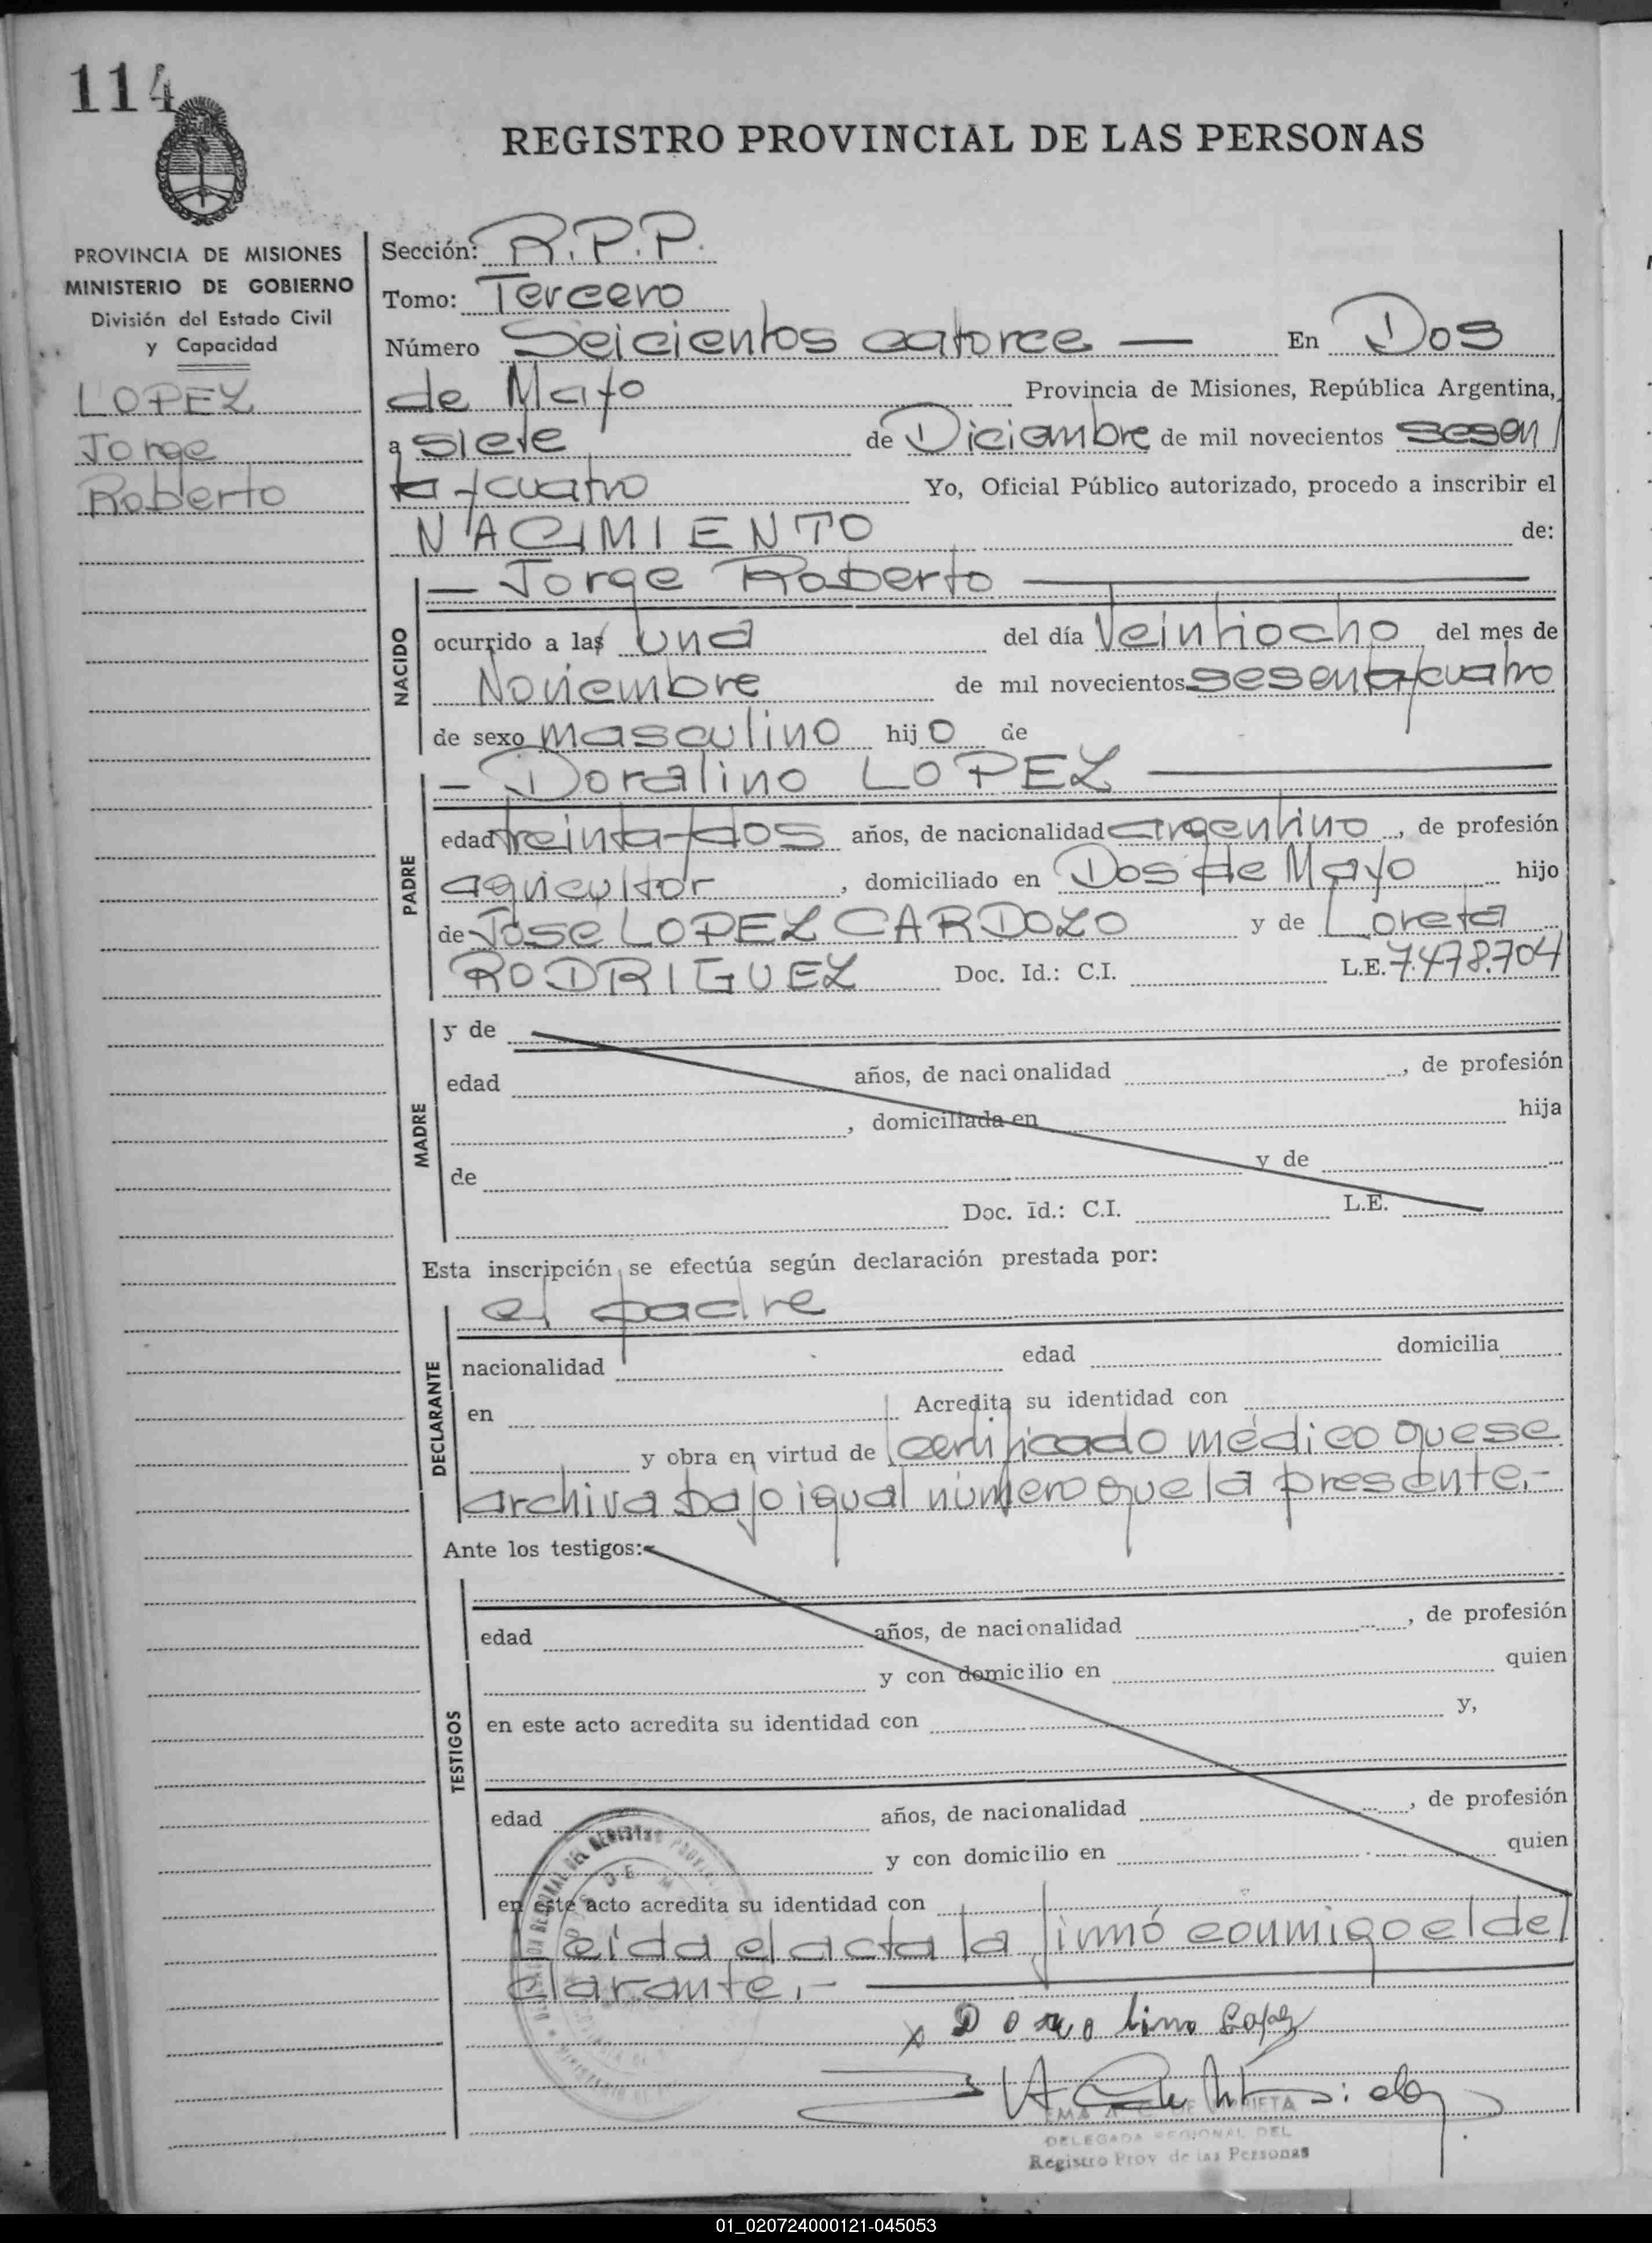 114
REGISTRO PROVINCIAL DE LAS PERSONAS
PROVINCIA DE MISIONES
MINISTERIO DE GOBIERNO
División del Estado Civil
y Capacidad
LOPEZ
Jorge
Roberto
Sección: R.P.P.
Tomo: Tercero
Número Seicientos catorce — En Dos
de Mayo Provincia de Misiones, República Argentina,
a siete de Diciembre de mil novecientos sesen
ta y cuatro Yo, Oficial Público autorizado, procedo a inscribir el
NACIMIENTO de:
NACIDO
— Jorge Roberto —
ocurrido a las una del día Veintiocho del mes de
Noviembre de mil novecientos sesenta y cuatro
de sexo masculino hijo de
PADRE
— Doralino LOPEZ —
edad treinta y dos años, de nacionalidad argentino, de profesión
agricultor, domiciliado en Dos de Mayo hijo
de Jose LOPEZ CARDOZO y de Loreta
RODRIGUEZ Doc. Id.: C.I. L.E. 7.478.704
MADRE
y de
edad años, de nacionalidad , de profesión
, domiciliada en hija
de y de
Doc. Id.: C.I. L.E.
Esta inscripción se efectúa según declaración prestada por:
DECLARANTE
el padre
nacionalidad edad domicilia
en Acredita su identidad con
y obra en virtud de certificado médico que se
archiva bajo igual número que la presente.-
Ante los testigos:
TESTIGOS
edad años, de nacionalidad , de profesión
y con domicilio en quien
en este acto acredita su identidad con y,
edad años, de nacionalidad , de profesión
y con domicilio en quien
en este acto acredita su identidad con
Leida el acta la firmó conmigo el de
clarante.-
x Doralino Lopez
DELEGADA REGIONAL DEL
Registro Prov de las Personas
01_020724000121-045053